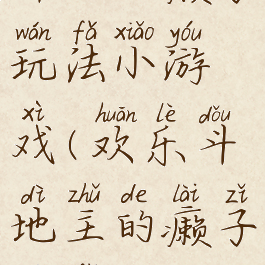 wán fǎ xiǎo yóu
玩法小游
xì huān lè dǒu
戏(欢乐斗
dì zhǔ de lài zǐ
地主的癞子